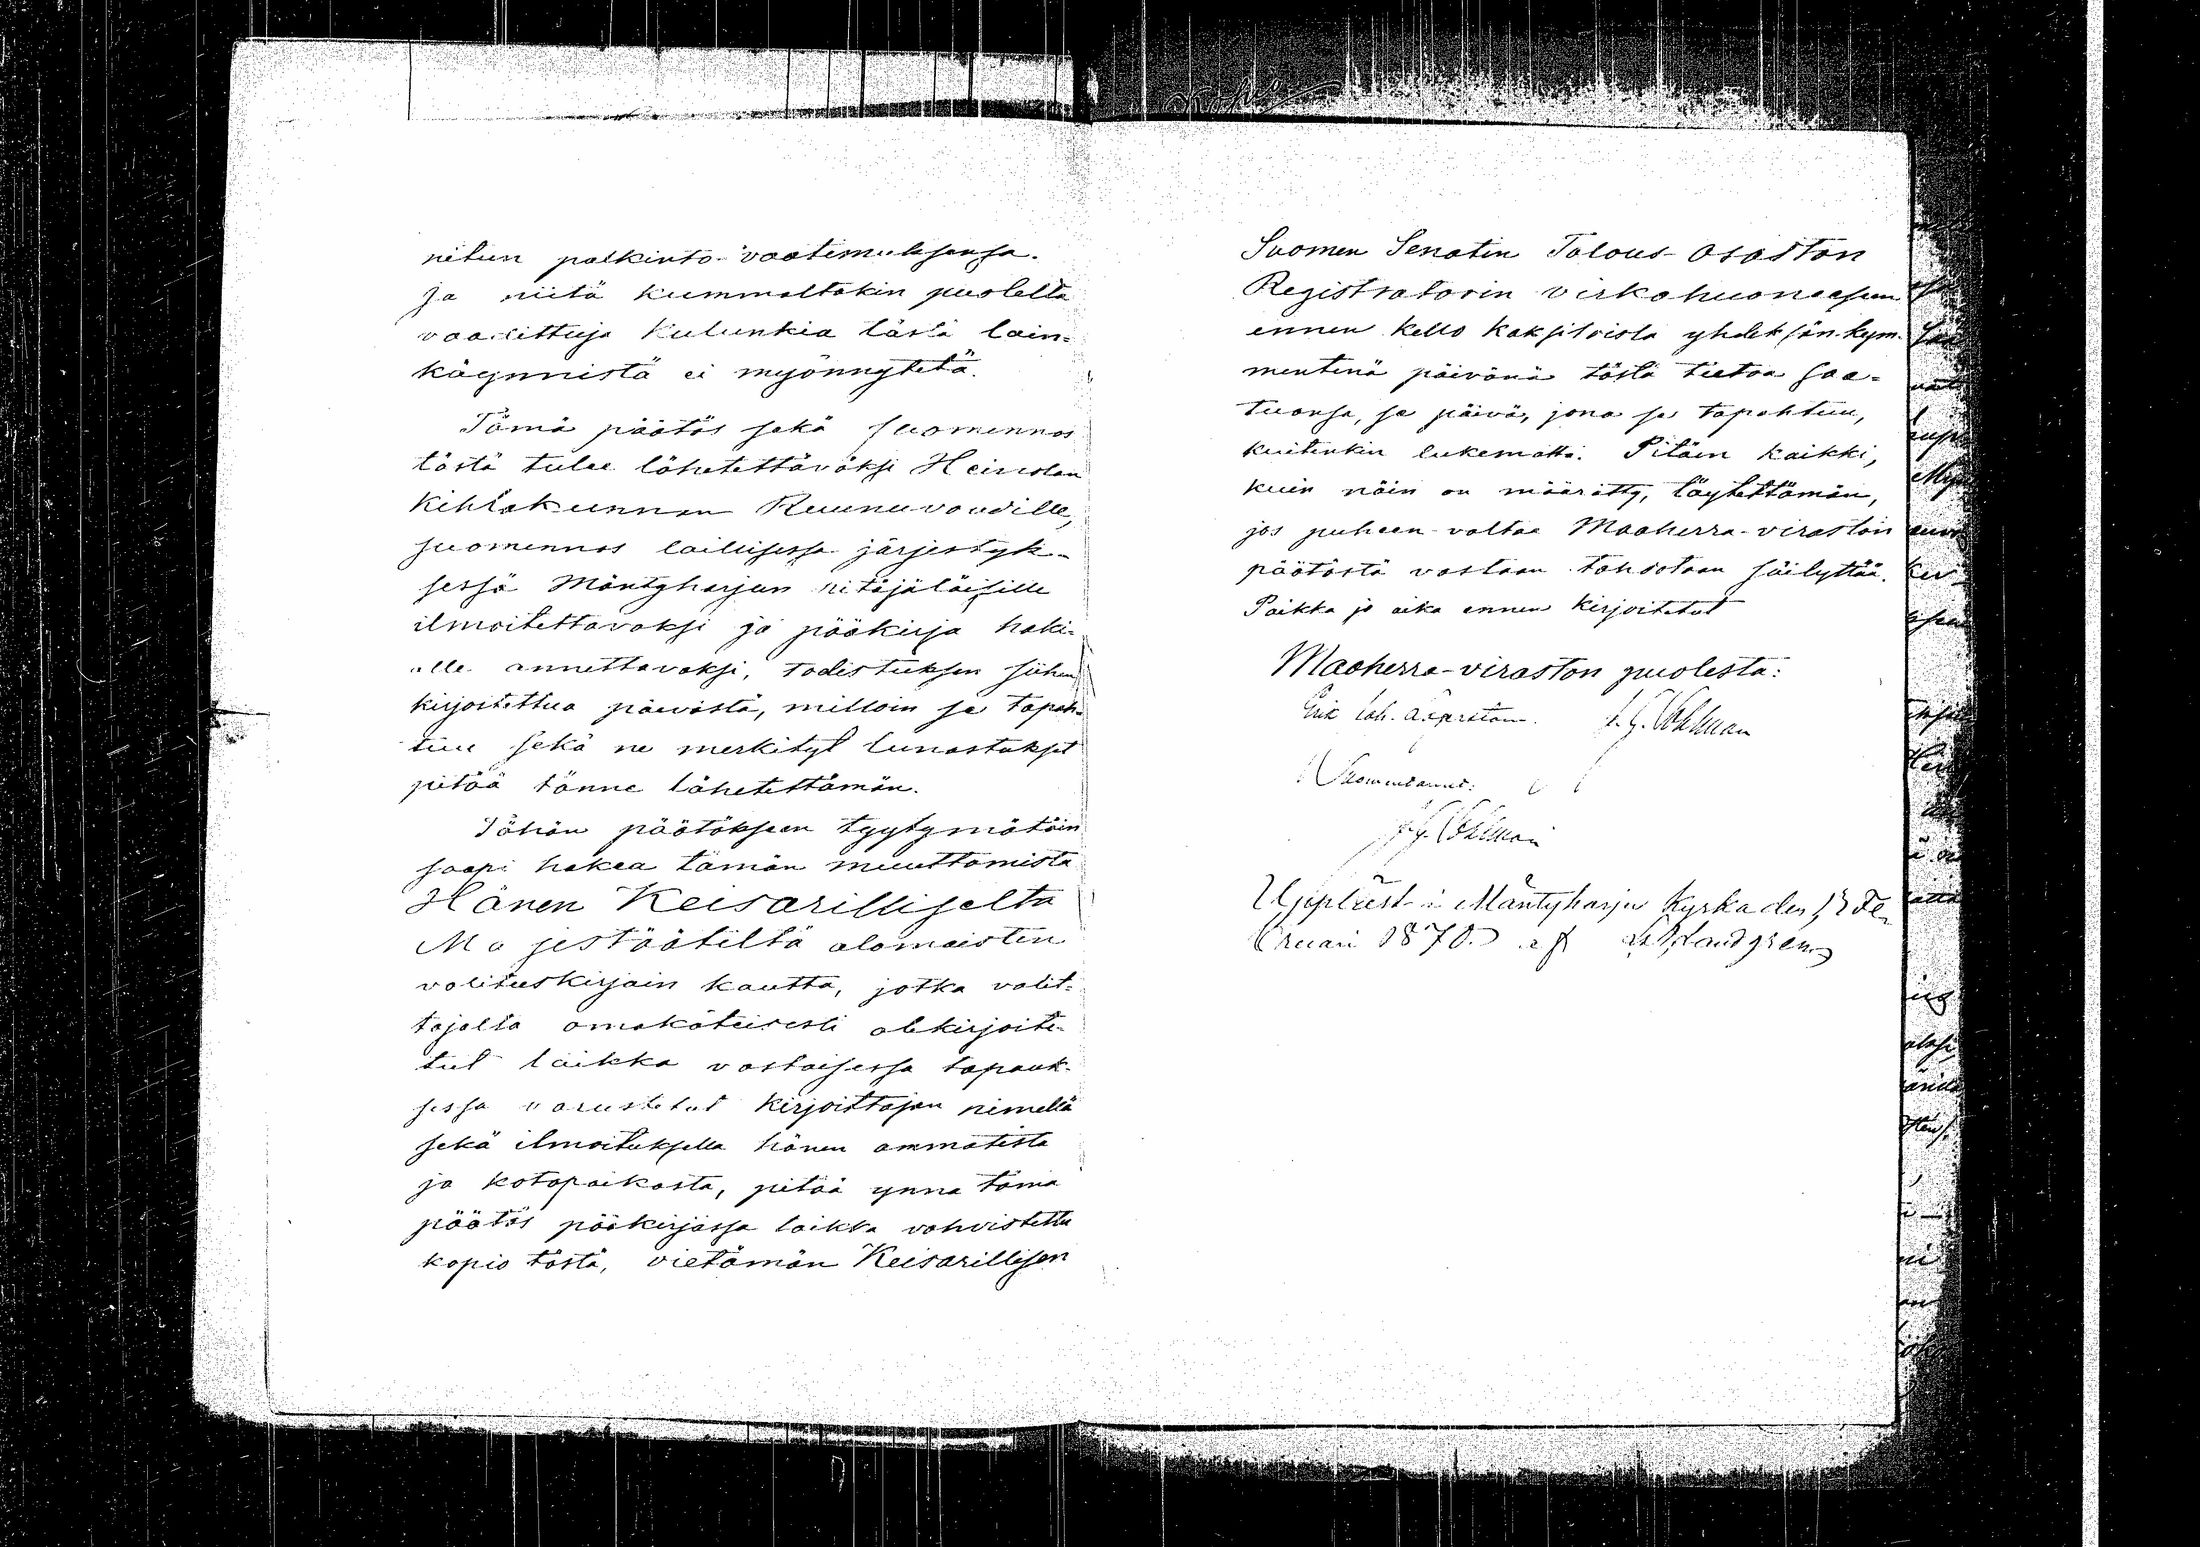 nitun palkinto-vaatimuksensa.
Ja niitä kummaltakin puolelta
vaadittuja kulunkia tästä lain-
käynnistä ei myönnytetä.
Tämä päätös sekä suomennos
tästä tulee lähetettäväksi Heinolan
Kihlakunnan Ruunuvoudille,
suomennos laillisessa järjestyk-
sessä Mäntyharjun pitäjäläisille
ilmoitettavaksi ja pääkirja haki-
alle annettavaksi, todistuksen siihen
kirjoitettua päivästä, milloin se tapah-
tuu sekä ne merkityt lunastukset
pitää tänne lähetettämän.
Tähän päätökseen tyytymätöin
saapi hakea tämän muuttamista
Hänen Keisarilliselta
Majestäätiltä alamaisten
valituskirjain kautta, jotka valit-
tajalta omakäteisesti alekirjoite-
tut taikka vastaisessa tapauk-
sessa varustetut kirjoittajan nimellä
sekä ilmoituksella hänen ammatista
ja kotopaikasta, pitää ynnä tämä
päätös pääkirjassa taikka vahvistettu
kopio tästä, vietämän Keisarillisen
Suomen Senatin Talous-Osaston
Registratorin virkahuoneesen
ennen kello kaksitoista yhdeksän-kym-
mentenä päivänä tästä tietoa saa-
tuansa, se päivä, jona se tapahtuu,
kuitenkin lukematta. Pitäen kaikki,
kuin näin on määrätty, täytettämän,
jos puheen-valtaa Maaherra-viraston
päätöstä vastaan tahdotaan säilyttää.
Paikka ja aika ennen kirjoitetut
Maaherra-viraston puolesta:
Erik Joh.
Suomentanut:
Uppläst i Mäntyharju Kyrka den 13 Fe-
bruari 1870. af